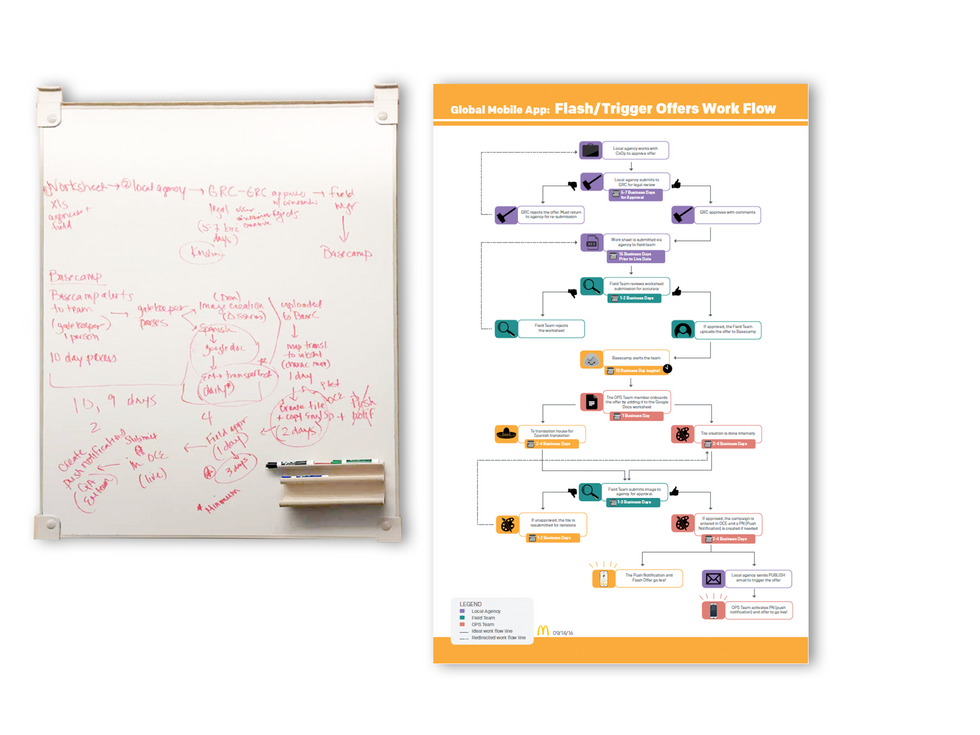 Worksheet → local agency → GRC-GRC approves → field
XLS
legal
w/ comments
rejects
Mgr
field
(5-7 biz
days)
Basecamp
Basecamp
Basecamp alerts
to team
(gatekeeper)
1 person
gatekeeper
parses
image creation
uploaded
to BaseC
10 day process
Spanish
google doc
map transl
1 day
(daily*)
10, 9 days
2
4
create tile
+ copy Eng/Sp
2 days
+
Push
notif
Field appr
(1 day)
3 days
* Minimum
create
push notification
Submit
in OCE
(live)
Global Mobile App: Flash/Trigger Offers Work Flow
Local agency works with
CoOp to approve offer
Local agency submits to
GRC for legal review
5-7 Business Days
for Approval
GRC rejects the offer. Must return
to agency for re-submission
GRC approves with comments
Work sheet is submitted via
agency to field team
15 Business Days
Prior to Live Date
Field Team reviews worksheet
submission for accuracy
1-2 Business Days
Field Team rejects
the worksheet
If approved, the Field Team
uploads the offer to Basecamp
Basecamp alerts the team
10 Business Day begins!
The OPS Team member onboards
the offer by adding it to the Google
Docs worksheet
1 Business Day
To translation house for
Spanish translation
2-4 Business Days
Tile creation is done internally
2-4 Business Days
Field Team submits image to
agency for approval
1-3 Business Days
If unapproved, the tile is
resubmitted for revisions
1-2 Business Days
If approved, the campaign is
entered in OCE and a PN (Push
Notification) is created if needed
2-4 Business Days
The Push Notification and
Flash Offer go live!
Local agency sends PUBLISH
email to trigger the offer
OPS Team activates PN (push
notification) and offer to go live!
LEGEND
Local Agency
Field Team
OPS Team
Ideal work flow line
Redirected work flow line
09/14/16